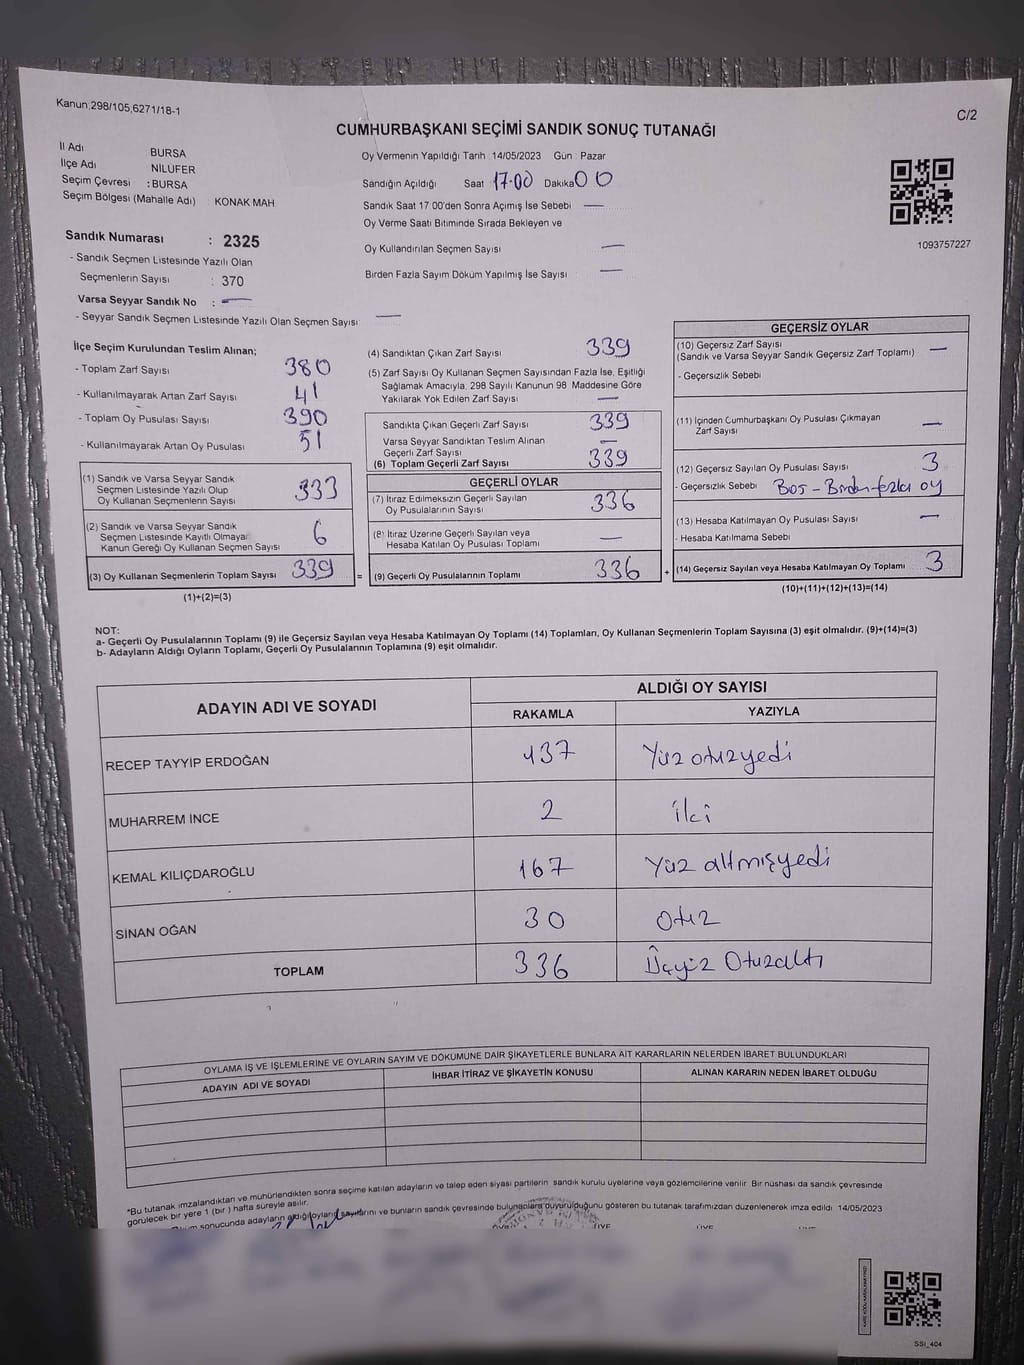 Kanun:298/105,6271/18-1
C/2
CUMHURBAŞKANI SEÇİMİ SANDIK SONUÇ TUTANAĞI
İl Adı BURSA
İlçe Adı NİLÜFER
Seçim Çevresi : BURSA
Seçim Bölgesi (Mahalle Adı) : KONAK MAH
Oy Vermenin Yapıldığı Tarih :14/05/2023 Gün : Pazar
Sandığın Açıldığı Saat 17:00 Dakika 00
Sandık Saat 17 00'den Sonra Açımış İse Sebebi —
Oy Verme Saati Bitiminde Sırada Bekleyen ve
Oy Kullandırılan Seçmen Sayısı —
Birden Fazla Sayım Döküm Yapılmış İse Sayısı —
1093757227
Sandık Numarası : 2325
- Sandık Seçmen Listesinde Yazılı Olan
Seçmenlerin Sayısı : 370
Varsa Seyyar Sandık No : —
- Seyyar Sandık Seçmen Listesinde Yazılı Olan Seçmen Sayısı —
İlçe Seçim Kurulundan Teslim Alınan;
- Toplam Zarf Sayısı 380
- Kullanılmayarak Artan Zarf Sayısı 41
- Toplam Oy Pusulası Sayısı 390
- Kullanılmayarak Artan Oy Pusulası 51
(1) Sandık ve Varsa Seyyar Sandık
Seçmen Listesinde Yazılı Olup
Oy Kullanan Seçmenlerin Sayısı 333
(2) Sandık ve Varsa Seyyar Sandık
Seçmen Listesinde Kayıtlı Olmayan
Kanun Gereği Oy Kullanan Seçmen Sayısı 6
(3) Oy Kullanan Seçmenlerin Toplam Sayısı 339
(1)+(2)=(3)
(4) Sandıktan Çıkan Zarf Sayısı 339
(5) Zarf Sayısı Oy Kullanan Seçmen Sayısından Fazla İse, Eşitliği
Sağlamak Amacıyla, 298 Sayılı Kanunun 98 Maddesine Göre
Yakılarak Yok Edilen Zarf Sayısı —
Sandıkta Çıkan Geçerli Zarf Sayısı 339
Varsa Seyyar Sandıktan Teslim Alınan
Geçerli Zarf Sayısı —
(6) Toplam Geçerli Zarf Sayısı 339
GEÇERLİ OYLAR
(7) İtiraz Edilmeksizin Geçerli Sayılan
Oy Pusulalarının Sayısı 336
(8) İtiraz Üzerine Geçerli Sayılan veya
Hesaba Katılan Oy Pusulası Toplamı —
= (9) Geçerli Oy Pusulalarının Toplamı 336
GEÇERSİZ OYLAR
(10) Geçersiz Zarf Sayısı
(Sandık ve Varsa Seyyar Sandık Geçersiz Zarf Toplamı) —
- Geçersizlik Sebebi
(11) İçinden Cumhurbaşkanı Oy Pusulası Çıkmayan
Zarf Sayısı —
(12) Geçersiz Sayılan Oy Pusulası Sayısı 3
- Geçersizlik Sebebi Boş - Birden fazla oy
(13) Hesaba Katılmayan Oy Pusulası Sayısı —
- Hesaba Katılmama Sebebi
+ (14) Geçersiz Sayılan veya Hesaba Katılmayan Oy Toplamı 3
(10)+(11)+(12)+(13)=(14)
NOT:
a- Geçerli Oy Pusulalarının Toplamı (9) ile Geçersiz Sayılan veya Hesaba Katılmayan Oy Toplamı (14) Toplamları, Oy Kullanan Seçmenlerin Toplam Sayısına (3) eşit olmalıdır. (9)+(14)=(3)
b- Adayların Aldığı Oyların Toplamı, Geçerli Oy Pusulalarının Toplamına (9) eşit olmalıdır.
ADAYIN ADI VE SOYADI
ALDIĞI OY SAYISI
RAKAMLA YAZIYLA
RECEP TAYYİP ERDOĞAN 137 Yüz otuzyedi
MUHARREM İNCE 2 iki
KEMAL KILIÇDAROĞLU 167 Yüz altmışyedi
SİNAN OĞAN 30 Otuz
TOPLAM 336 Üçyüz Otuzaltı
OYLAMA İŞ VE İŞLEMLERİNE VE OYLARIN SAYIM VE DÖKÜMÜNE DAİR ŞİKAYETLERLE BUNLARA AİT KARARLARIN NELERDEN İBARET BULUNDUKLARI
ADAYIN ADI VE SOYADI İHBAR İTİRAZ VE ŞİKAYETİN KONUSU ALINAN KARARIN NEDEN İBARET OLDUĞU
*Bu tutanak imzalandıktan ve mühürlendikten sonra seçime katılan adayların ve talep eden siyasi partilerin sandık kurulu üyelerine veya gözlemcilerine verilir. Bir nüshası da sandık çevresinde
görülecek bir yere 1 (bir) hafta süreyle asılır.
sonucunda adayların aldığı oyların sayılarını ve bunların sandık çevresinde bulunanlara duyurulduğunu gösteren bu tutanak tarafımızdan düzenlenerek imza edildi 14/05/2023
SSİ_404